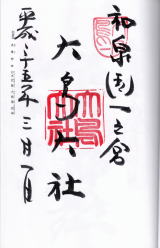 和泉國一之宮
大鳥大社
平成二十五年三月一日